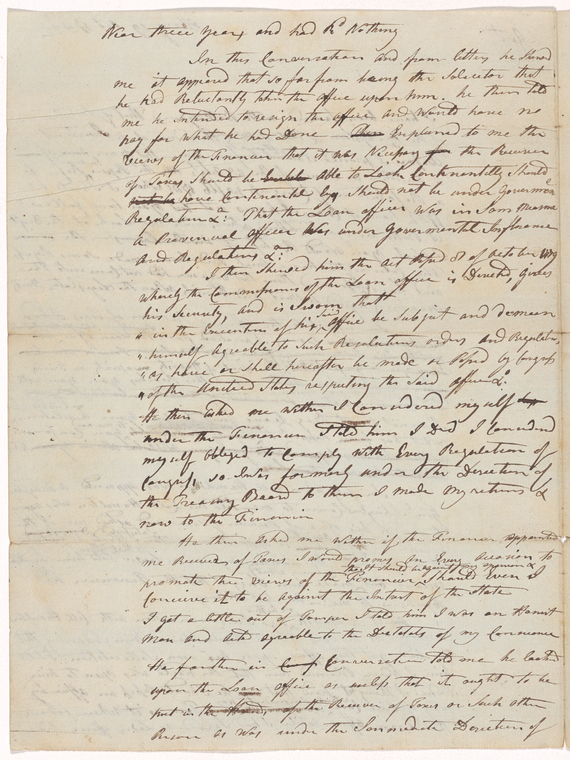 Near three Years and had Rd Nothing
In this Conversation and from letters he Shewd
me it appeared that so far from being the Solicitor that
he had Reluctantly taken the office upon him. he then told
me he Intended to resign the office and Would have no
pay for what he had Done Explained to me the
Views of the Financier that it was Necessary for the Receiver
of Taxes Should be able to Look Continentally Should
have Continental Should not be under Governmen
Regulation &a: That the Loan officer Was in Som Measure
A Provencial officer Was under Governmental Influence
And Regulations &a:
I then Shewed him the act Passd 8 of October
whereby the Commissioner of the Loan office is Directed, gives
his Security, and is Sworn that
" in the Execution of his Said office be Subject and demean
" himself Agreable to Such Resolutions orders and Regulatn
" as have or Shall hereafter be made or Passd by Congress
" of the United States respecting the Said office &a:
He then asked me wither I Considered my self
under the Financier I told him I Did I Considerd
myself obliged to Comply With Every Regulation of
Congress, so I was formerly under the Direction of
the Treasury Board to them I made my returns &
now to the Financier
He then asked me wither if the Financier appointed
me Receiver of Taxes I would promis on Every Occasion to
promote the Views of the Financier Should Even I
tho it Should be against my opinion &
Conceive it to be against the Intrest of the State
I got a little out of Temper I told him I was an Honest
Man and acted agreable to the Dictates of my Concience
He farther in Conversation told me he looked
upon the Loan office as useless that it ought to be
put in the Hands of the Receiver of Taxes or Such other
Person as was under the Immediate Direction of